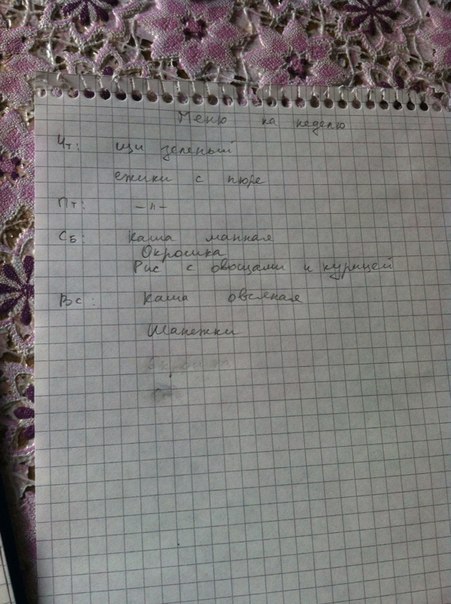 Меню на неделю
Чт: щи зеленый
ежики с пюре
Пт: -"-
Сб: каша манная
Окрошка
Рис с овощами и курицей
Вс: каша овсяная
Шанежки